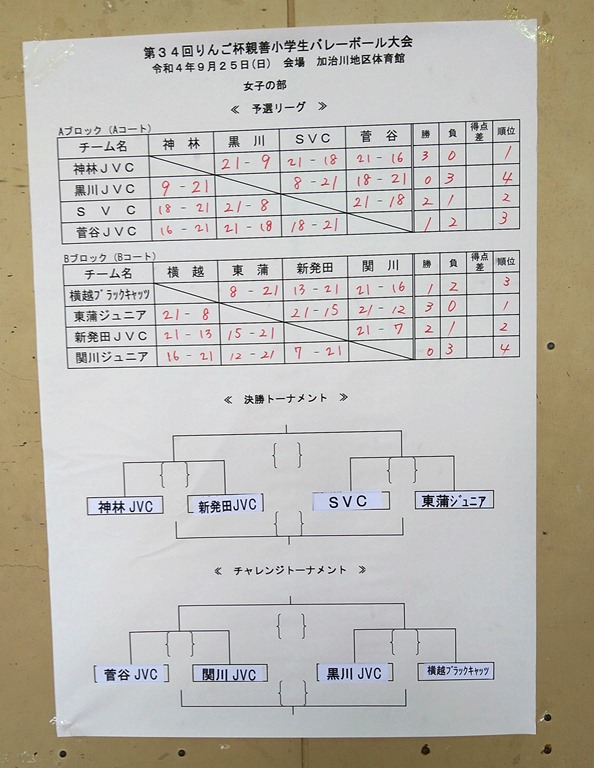 第34回りんご杯親善小学生バレーボール大会
令和4年9月25日(日) 会場 加治川地区体育館
女子の部
≪ 予選リーグ ≫
Aブロック(Aコート)
チーム名 神林 黒川 SVC 菅谷 勝 負 得点差 順位
神林JVC 21-9 21-18 21-16 3 0 1
黒川JVC 9-21 8-21 18-21 0 3 4
SVC 18-21 21-8 21-18 2 1 2
菅谷JVC 16-21 21-18 18-21 1 2 3
Bブロック(Bコート)
チーム名 横越 東蒲 新発田 関川 勝 負 得点差 順位
横越ブラックキャッツ 8-21 13-21 21-16 1 2 3
東蒲ジュニア 21-8 21-15 21-12 3 0 1
新発田JVC 21-13 15-21 21-7 2 1 2
関川ジュニア 16-21 12-21 7-21 0 3 4
≪ 決勝トーナメント ≫
神林JVC 新発田JVC SVC 東蒲ジュニア
≪ チャレンジトーナメント ≫
菅谷JVC 関川JVC 黒川JVC 横越ブラックキャッツ